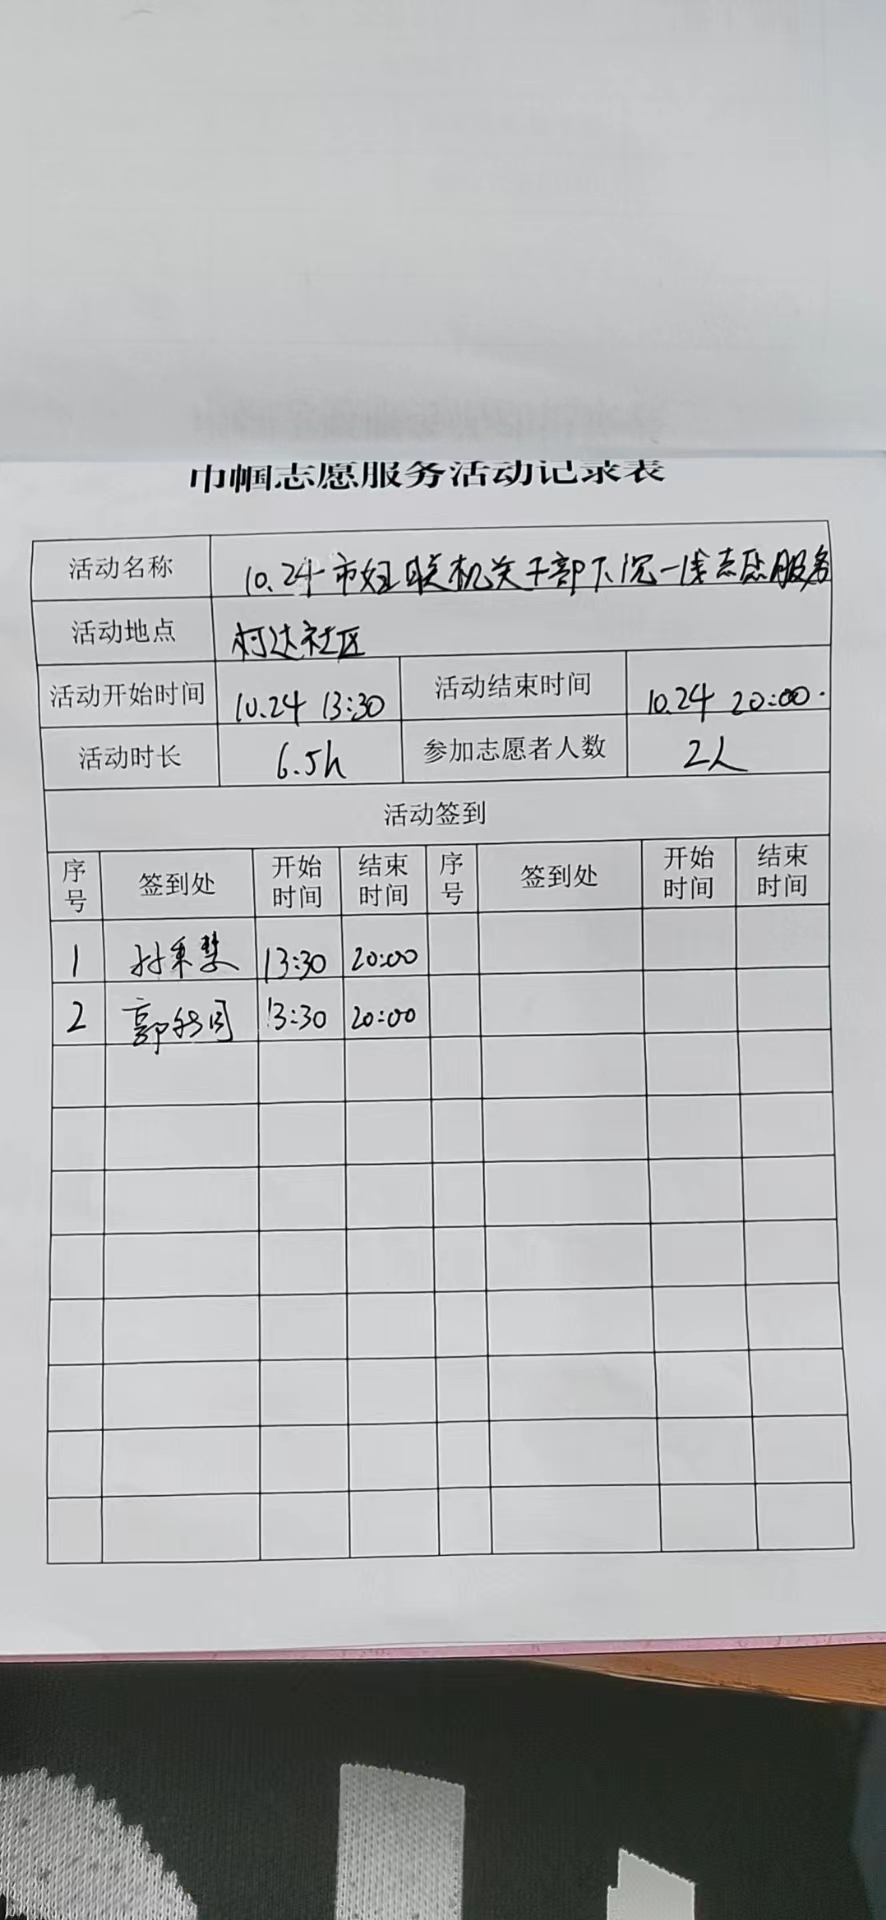 巾帼志愿服务活动记录表
活动名称 10.24市妇联机关干部下沉一线志愿服务
活动地点 村达社区
活动开始时间 10.24 13:30 活动结束时间 10.24 20:00.
活动时长 6.5h 参加志愿者人数 2人
活动签到
序号 签到处 开始时间 结束时间 序号 签到处 开始时间 结束时间
1 13:30 20:00
2 郭 13:30 20:00